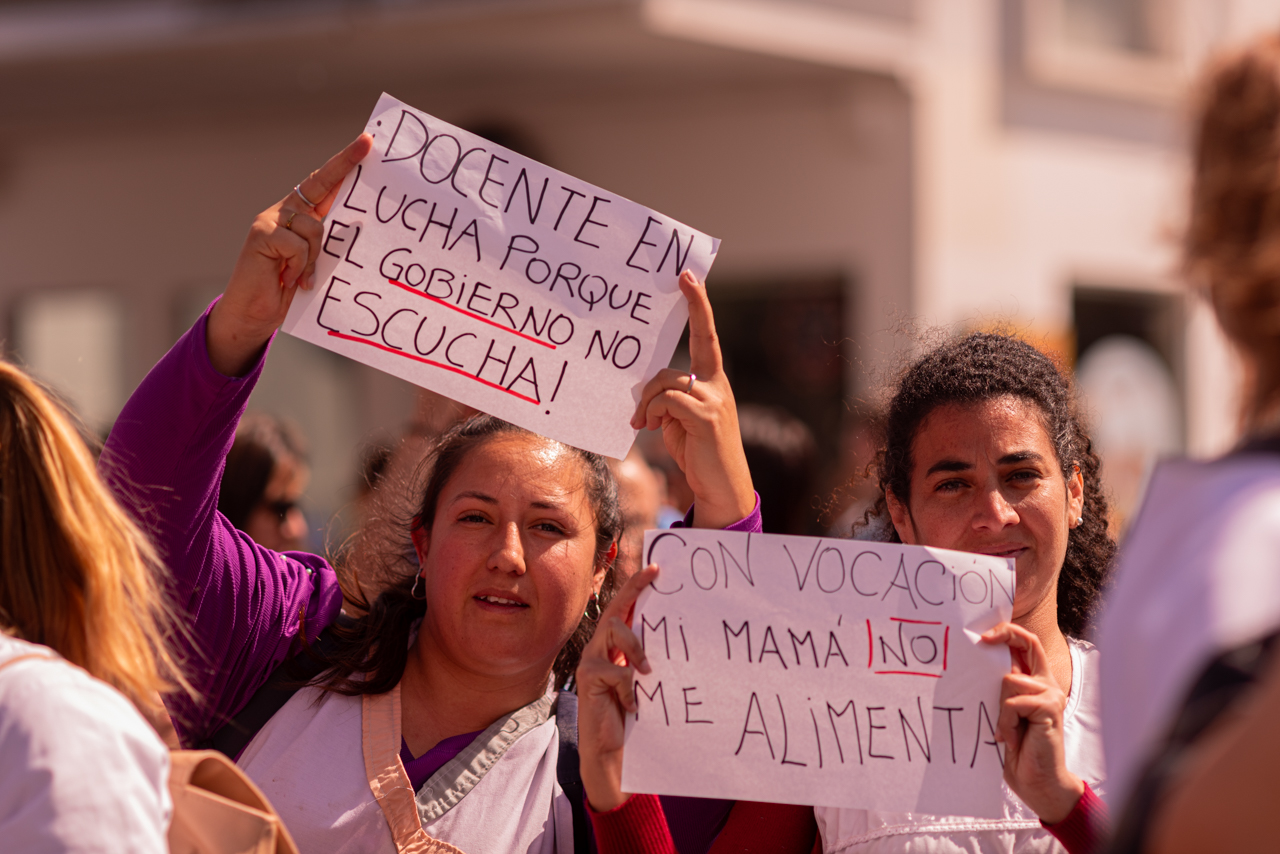 ¡DOCENTE EN
LUCHA PORQUE
EL GOBIERNO NO
ESCUCHA!
CON VOCACIÓN
MI MAMÁ NO
ME ALIMENTA